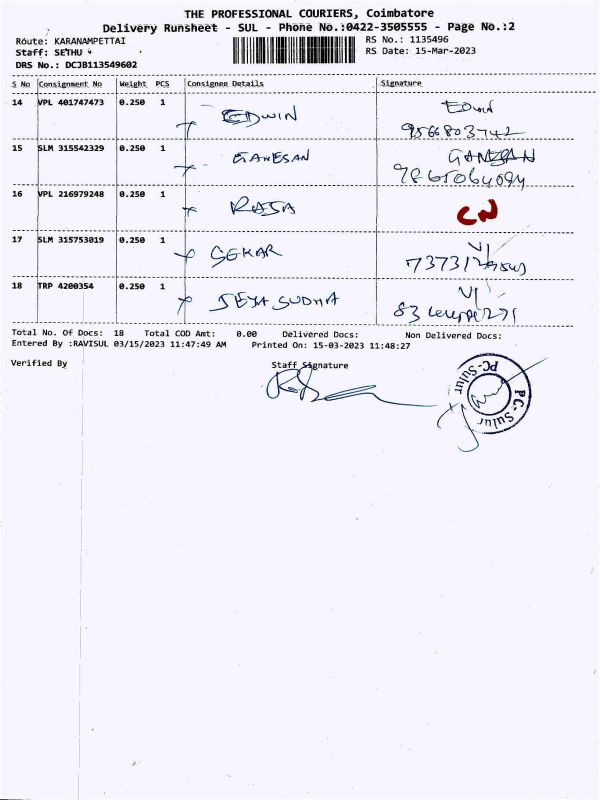 THE PROFESSIONAL COURIERS, Coimbatore
Delivery Runsheet - SUL - Phone No.:0422-3505555 - Page No.:2
Route: KARANAMPETTAI RS No.: 1135496
Staff: SETHU RS Date: 15-Mar-2023
DRS No.: DCJB113549602
S No Consignment No Weight PCS Consignee Details Signature
14 VPL 401747473 0.250 1 EDWIN Edwin
9566803742
15 SLM 315542329 0.250 1 GANESAN GANESAN
16 VPL 216979248 0.250 1 RAJA CN
17 SLM 315753019 0.250 1 SEKAR
18 TRP 4200354 0.250 1 JEYA SUDHA
Total No. Of Docs: 18 Total COD Amt: 0.00 Delivered Docs: Non Delivered Docs:
Entered By :RAVISUL 03/15/2023 11:47:49 AM Printed On: 15-03-2023 11:48:27
Verified By Staff Signature
PC-Sulur PC-Sulur